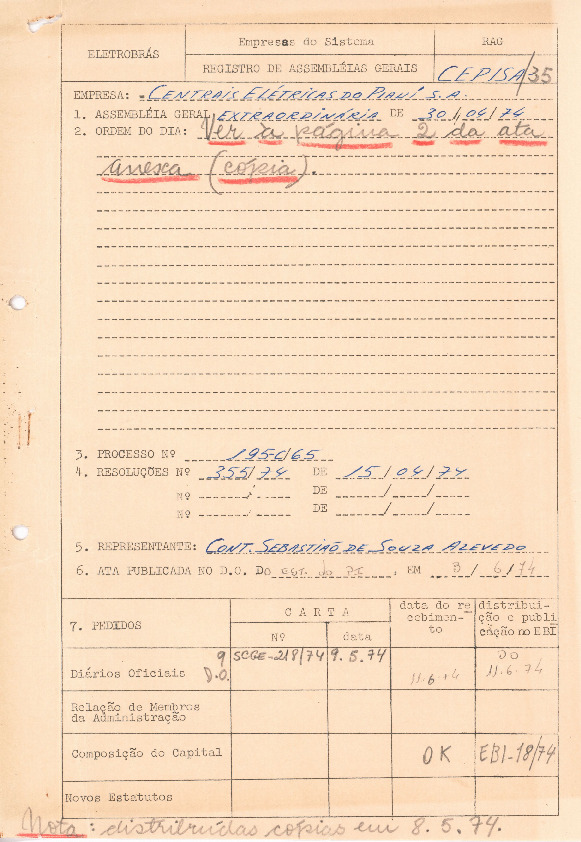 ELETROBRÁS
Empresas do Sistema
RAG
REGISTRO DE ASSEMBLÉIAS GERAIS
CEPISA/35
EMPRESA: - CENTRAIS ELÉTRICAS DO PIAUÍ S.A.
1. ASSEMBLÉIA GERAL EXTRAORDINÁRIA DE 30/04/74
2. ORDEM DO DIA: Ver a página 2 da ata
anexa (cópia).
3. PROCESSO Nº 195-C/65
4. RESOLUÇÕES Nº 355/74 DE 15/04/74
Nº / DE / /
Nº DE / /
5. REPRESENTANTE: CONT. SEBASTIÃO DE SOUZA AZEVEDO
6. ATA PUBLICADA NO D.O. Do est. do PI, EM 3/6/74
7. PEDIDOS
C A R T A
Nº
data
data do re
cebimen-
to
distribui-
ção e publi
cação no EBI
Diários Oficiais 9 D.O.
SCGE-218/74
9.5.74
11.6.74
DO
11.6.74
Relação de Membros
da Administração
Composição do Capital
OK
EBI-18/74
Novos Estatutos
Nota: distribuídas cópias em 8.5.74.